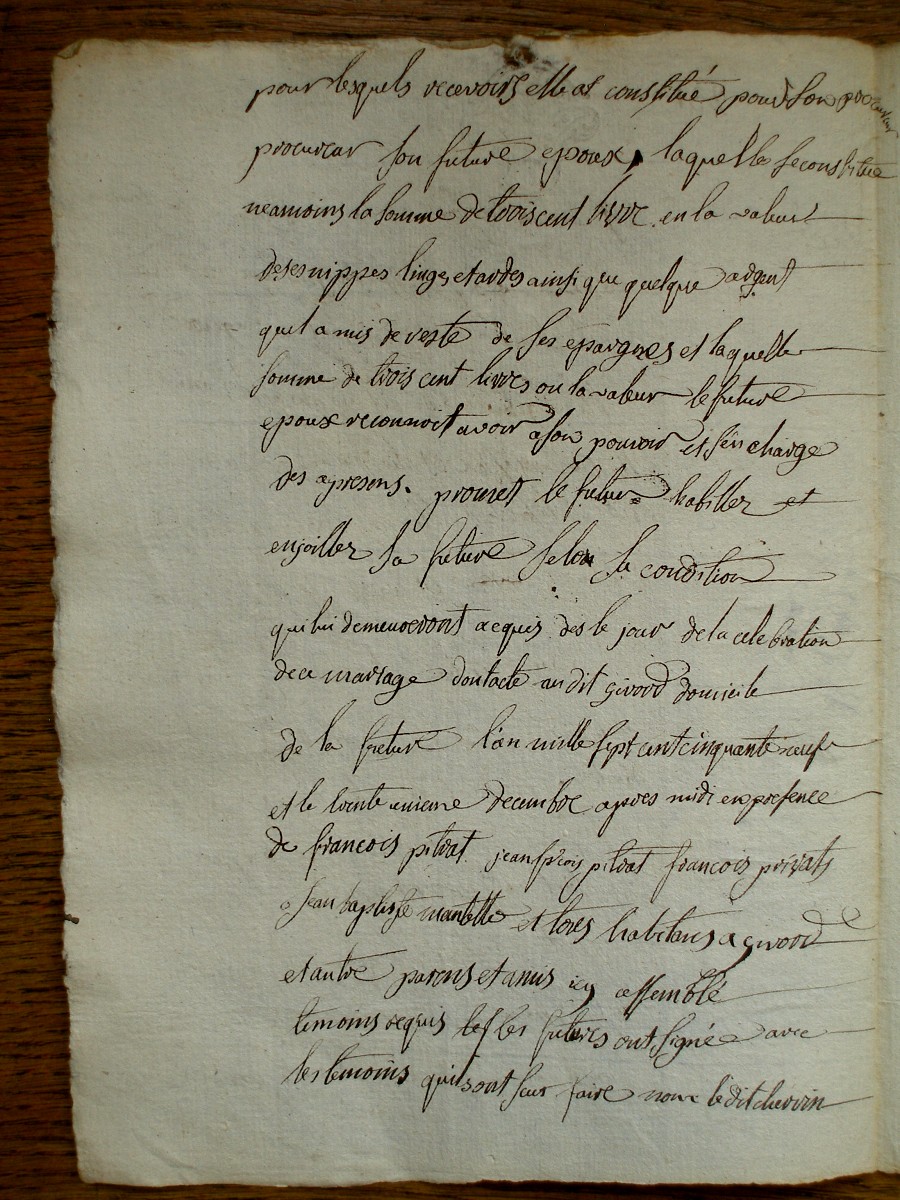 pour lesquels recevoirs elle at constitué pour son procureur
procurear son future epoux, laquelle se constitue
neamoins la somme de trois cent livre en la valeur
de ses nippes linges et ardes ainsi que quelque argent
quel a mis de reste de ses epargnes et laquelle
somme de trois cent livres ou la valeur le future
epoux reconnoit avoir a son pouvoir et s'en charge
des apresens. promet le futur habiller et
enjoiller sa future selon sa condition
qui lui demeureront acquis des le jour de la celebration
de ce mariage dont acte au dit girood domicile
de la future l'an mille sept cent cinquante neuf
et le trente unieme decembre apres midi en presence
de francois pitrat jean frçois pitrat francois privats
jean baptiste mantelle et tous habitans a girood
et autre parens et amis icy assemblé
temoins requis les futures ont signée avec
les temoins qui sont seur faire non le dit chervin